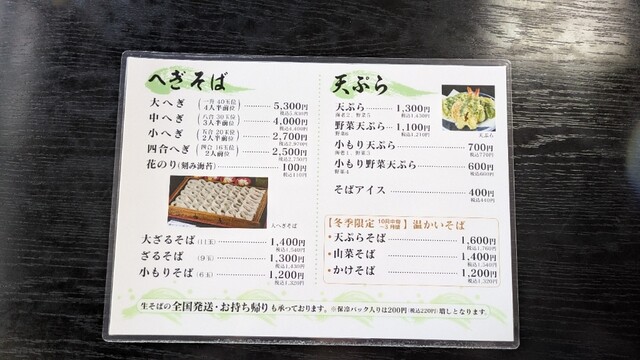 へぎそば
大へぎ (一升 40玉位 4人半前位) 5,300円
税込5,830円
中へぎ (八合 30玉位 3人半前位) 4,000円
税込4,400円
小へぎ (五合 20玉位 2人半前位) 2,700円
税込2,970円
四合へぎ (四合 16玉位 2人前位) 2,500円
税込2,750円
花のり(刻み海苔) 100円
税込110円
大へぎそば
大ざるそば (11玉) 1,400円
税込1,540円
ざるそば (9玉) 1,300円
税込1,430円
小もりそば (6玉) 1,200円
税込1,320円
天ぷら
天ぷら 1,300円
海老2、野菜5 税込1,430円
野菜天ぷら 1,100円
野菜6 税込1,210円
天ぷら
小もり天ぷら 700円
海老1、野菜3 税込770円
小もり野菜天ぷら 600円
野菜4 税込660円
そばアイス 400円
税込440円
【冬季限定 10月中旬〜3月頃】温かいそば
・天ぷらそば 1,600円
税込1,760円
・山菜そば 1,400円
税込1,540円
・かけそば 1,200円
税込1,320円
生そばの全国発送・お持ち帰りも承っております。※保冷パック入りは200円(税込220円)増しとなります。